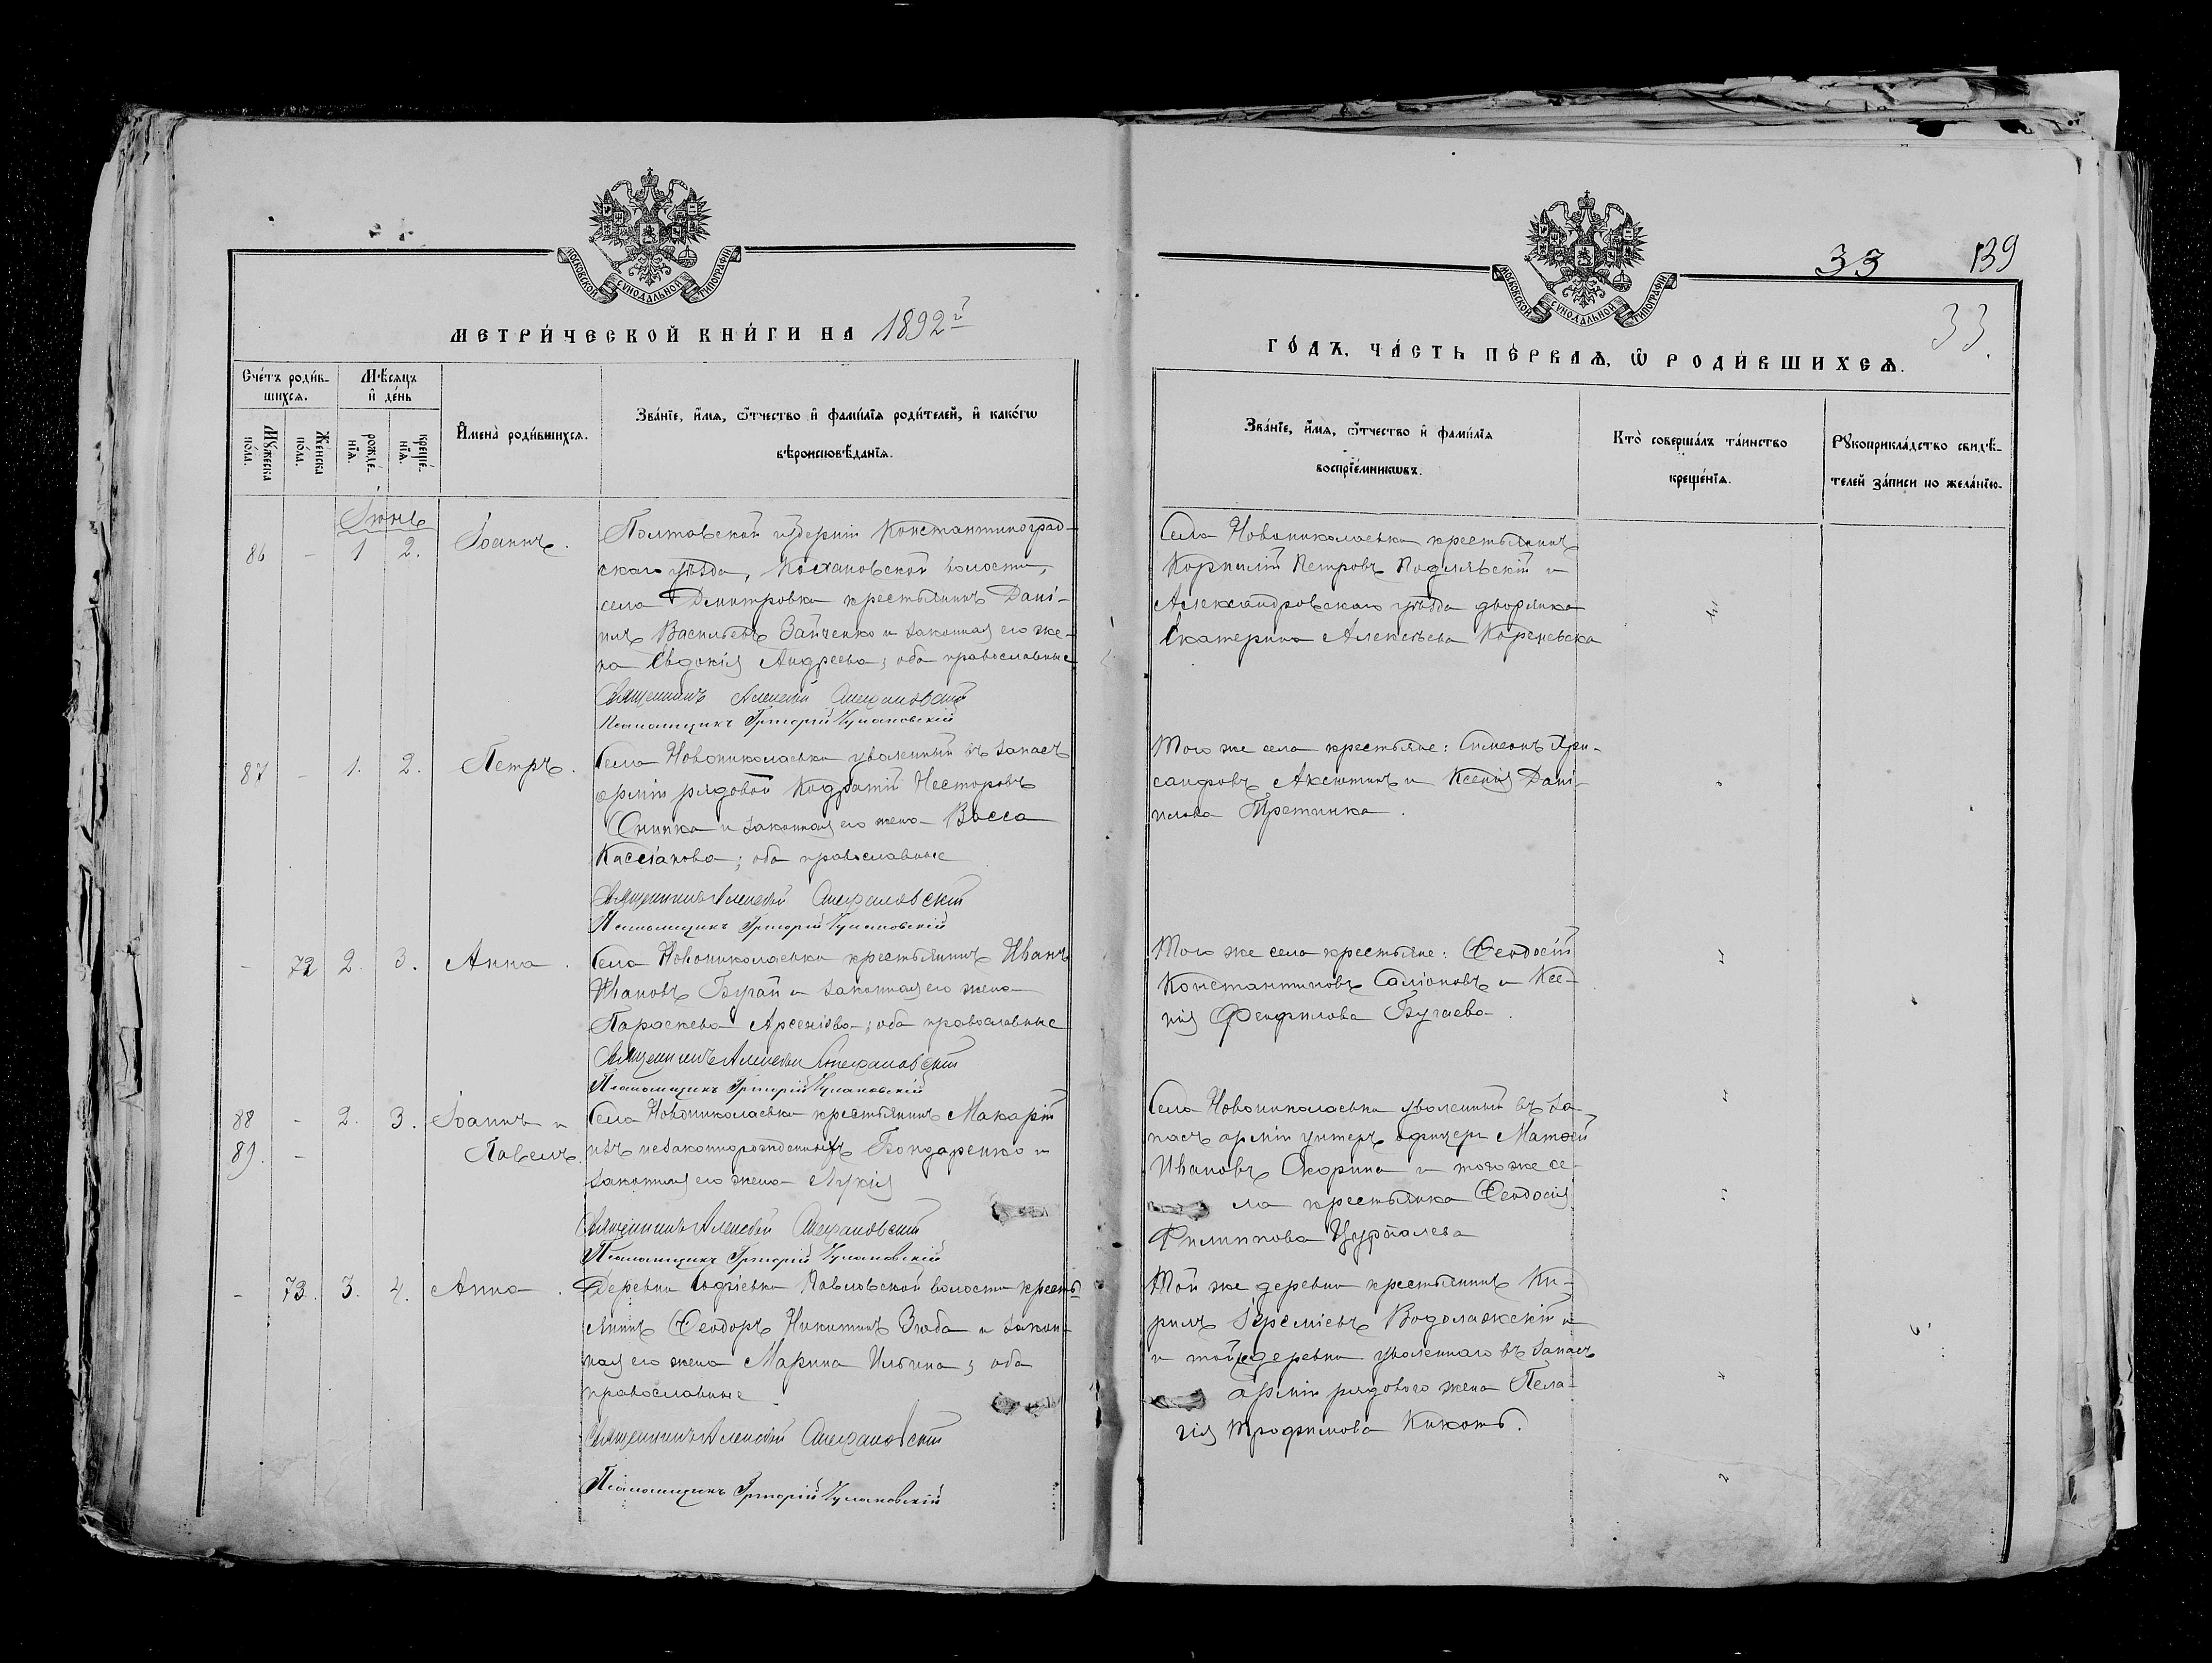 МОСКОВСКОЙ СѴНОДАЛЬНОЙ ТИПОГРАФІИ
МЕТРИ́ЧЕСКОЙ КНИ́ГИ НА 1892й
Сче́тъ роди́в-
шихсѧ.
Мꙋ́жеска по́ла.
Же́нска по́ла.
Мѣ́сѧцъ и҆ де́нь
рожде́-
нїѧ.
креще́-
нїѧ.
И҆мена̀ роди́вшихсѧ.
Зва́нїе, и҆́мѧ, ѻ҆́тчество и҆ фами́лїѧ роди́телей, и҆ како́гѡ
вѣроисповѣ́данїѧ.
Іюнь
86 - 1 2. Іоаннъ.
Полтавской губерніи Константиноград-
скаго уѣзда, волости,
села Дмитровки крестьянинъ Дані-
илъ Васильевъ Зайченко и законная его же-
на Евдокія Андреева; оба православные
Священникъ Алексѣй
Псаломщикъ Григорій
87 - 1. 2. Петръ.
Села Новониколаевки уволенный въ запасъ
арміи рядовой Кодратій Несторовъ
и законная его жена Васса
Кассіанова; оба православные
Священникъ Алексѣй
Псаломщикъ Григорій
- 72 2. 3. Анна.
Села Новониколаевки крестьянинъ Иванъ
Ивановъ Бугай и законная его жена
Параскева Арсеніева; оба православные
Священникъ Алексѣй
Псаломщикъ Григорій
88 - 2. 3. Іоаннъ и
89. - Павелъ.
Села Новониколаевки крестьянинъ Макарій
изъ незаконнорожденныхъ Бондаренко и
законная его жена Лукія
Священникъ Алексѣй
Псаломщикъ Григорій
- 73. 3. 4. Анна.
Деревни Софіевки Павловской волости кресть
янинъ Ѳеодоръ Никитинъ Зюба и закон-
ная его жена Марина Ильина; оба
православные
Священникъ Алексѣй
Псаломщикъ Григорій
МОСКОВСКОЙ СѴНОДАЛЬНОЙ ТИПОГРАФІИ
33 139
33.
ГО́ДЪ, ЧА́СТЬ ПЕ́РВАѦ, Ѡ҆ РОДИ́ВШИХСѦ.
Зва́нїе, и҆́мѧ, ѻ҆́тчество и҆ фами́лїѧ
воспрїе́мникѡвъ.
Кто̀ соверша́лъ та́инство
креще́нїѧ.
Рꙋкоприкла́дство свидѣ́-
телей за́писи по жела́нїю.
Села Новониколаевки крестьянинъ
Корнилій Петровъ и
Александровскаго уѣзда дворянка
Екатерина Алексѣева
Того же села крестьяне: Симеонъ Хри-
санфовъ Аксютинъ и Ксенія Дані-
илова
Того же села крестьяне: Ѳеодосій
Константиновъ и Ксе-
нія Ѳеофилова Бугаева.
Села Новониколаевки уволенный въ за-
пасъ арміи унтеръ офицеръ Матѳей
Ивановъ Скорина и того же се-
ла крестьянка Ѳеодосія
Филиппова
Той же деревни крестьянинъ Ки-
рилъ Іереміевъ Водолажскій и
и той же деревни уволеннаго въ запасъ
арміи рядового жена Пела-
гія Трофимова Кикоть.